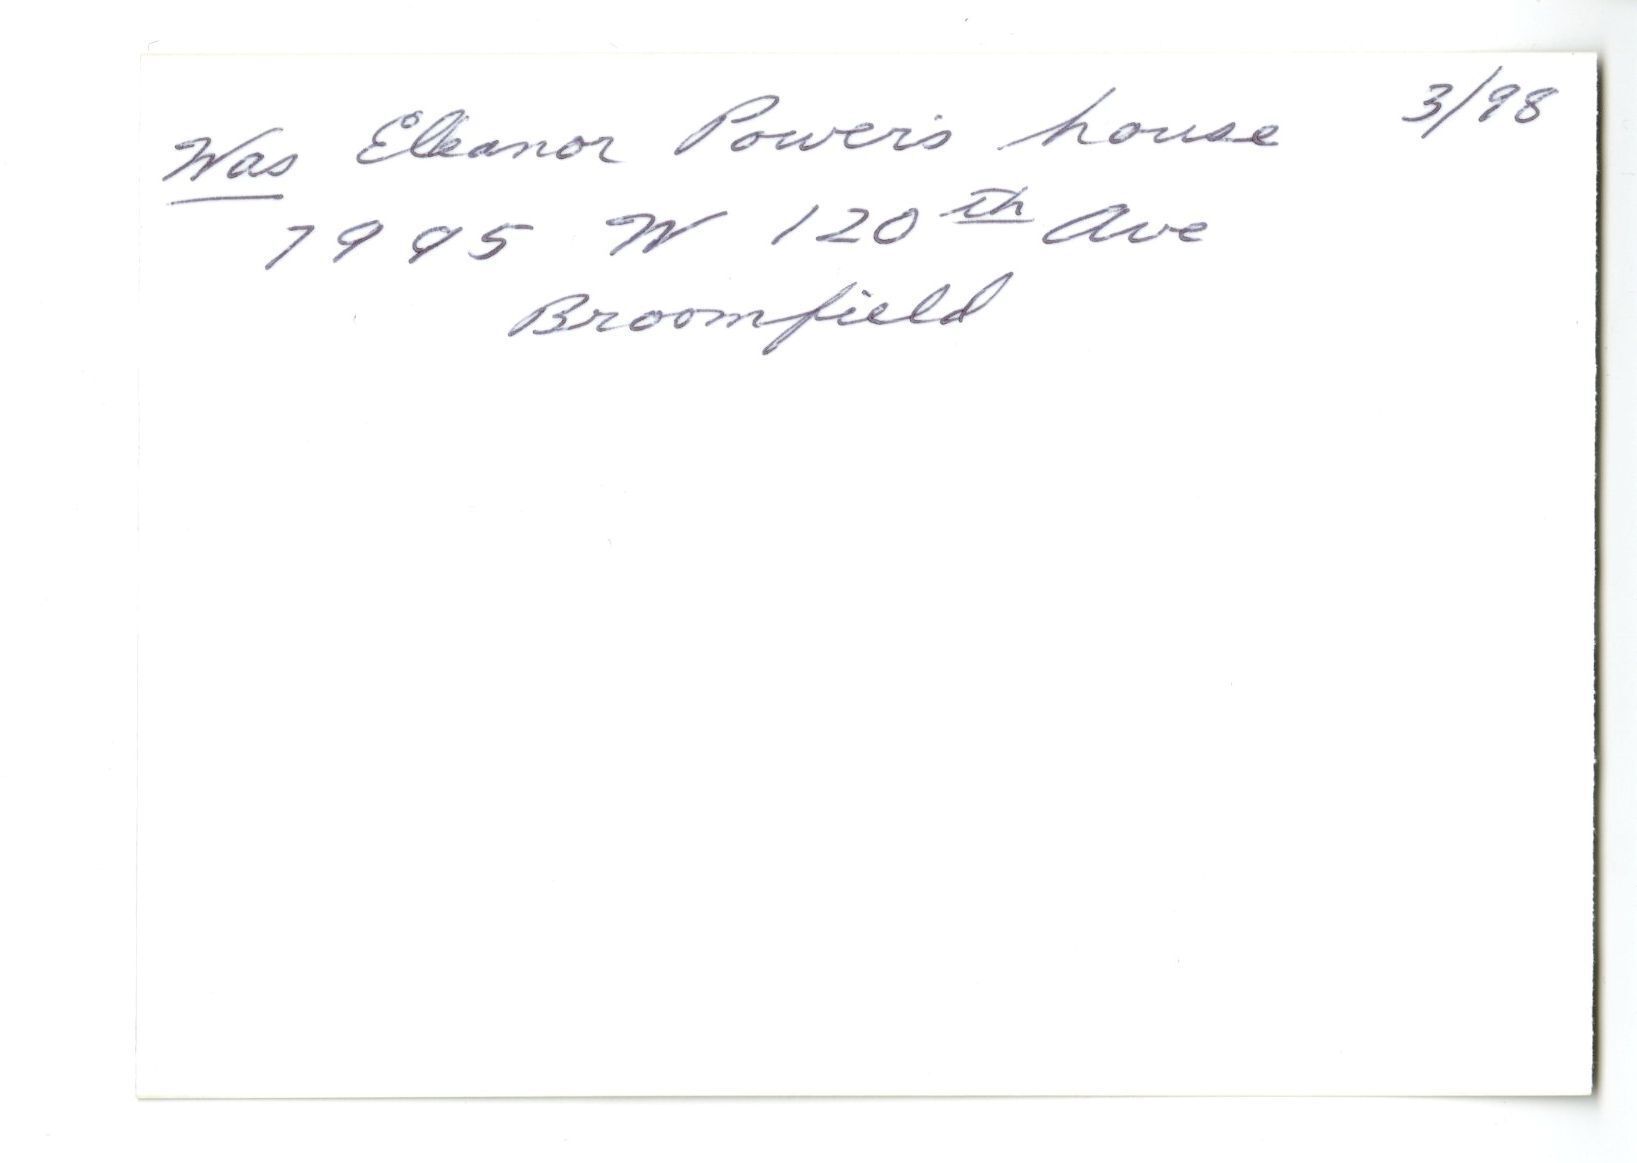 Was Eleanor Power's house 3/98
7995 W 120th Ave
Broomfield